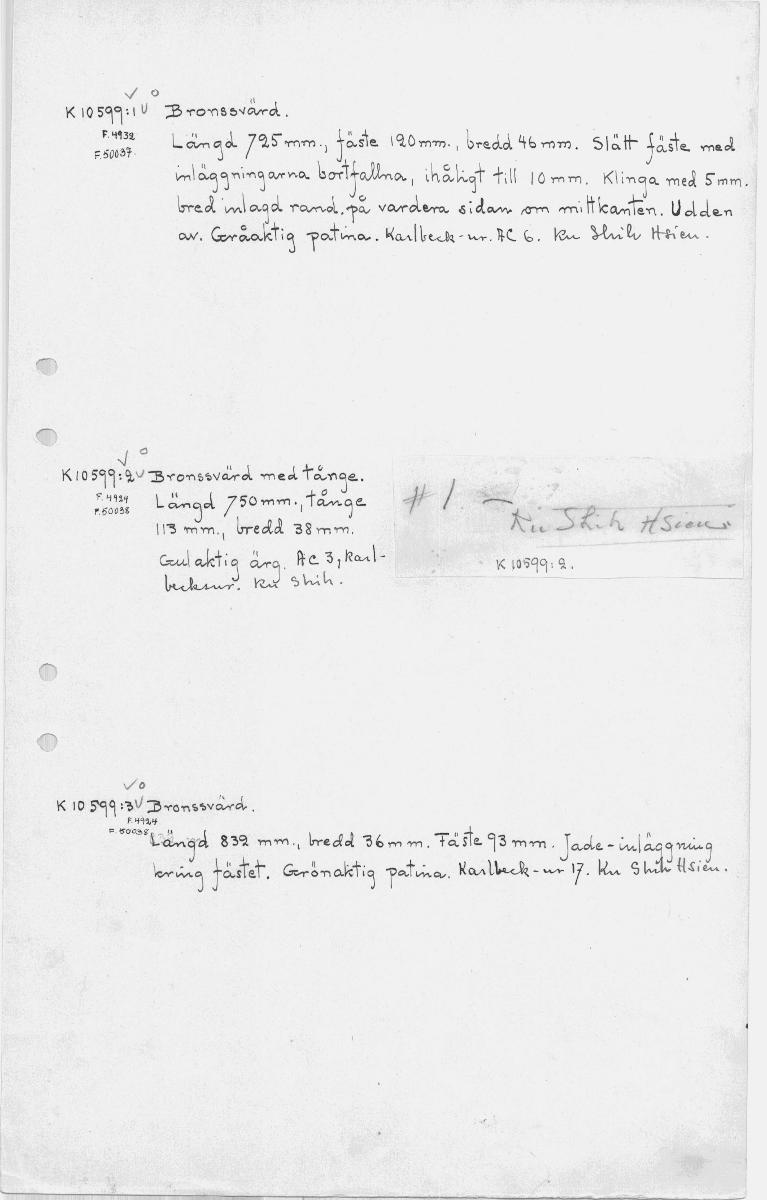 ✓ o
K 10599:1 ∪ Bronssvärd.
F. 4932
F. 50037.
Längd 725 mm., fäste 120 mm., bredd 46 mm. Slätt fäste med
inläggningarna bortfallna, ihåligt till 10 mm. Klinga med 5 mm.
bred inlagd rand. på vardera sidan om mittkanten. Udden
av. Gråaktig patina. Karlbeck-nr. AC 6. Ku Shih Hsien.
✓ o
K 10599:2 ∪ Bronssvärd med tånge.
F. 4924
F. 50038
Längd 750 mm., tånge
113 mm., bredd 38 mm.
Gulaktig ärg. AC 3, Karl-
becksnr. Ku Shih.
# 1 —
Ku Shih Hsien.
K 10599:2.
✓ o
K 10599:3 ∪ Bronssvärd.
F. 4924
F. 50038
Längd 832 mm., bredd 36 mm. Fäste 93 mm. Jade-inläggning
kring fästet. Grönaktig patina. Karlbeck-nr 17. Ku Shih Hsien.